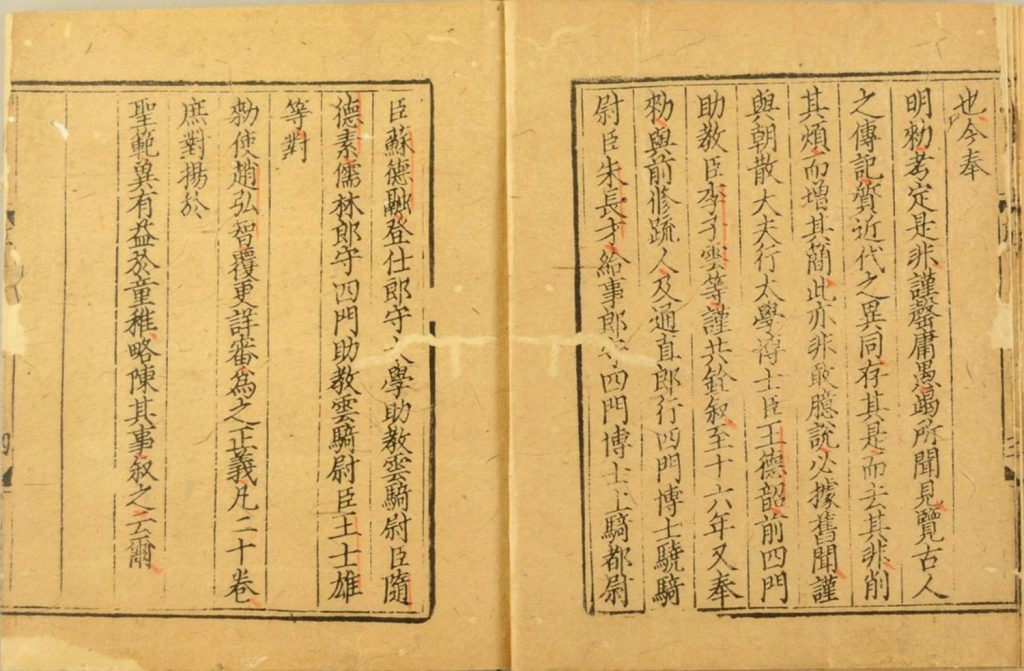 也今奉
明勑考定是非謹罄庸愚竭所聞見覽古人
之傳記質近代之異同存其是而去其非削
其煩而增其簡此亦非敢臆說必據舊聞謹
與朝散大夫行太學博士臣王德韶前四門
助教臣李子雲等謹共銓叙至十六年又奉
勑與前修疏人及通直郎行四門博士驍騎
尉臣朱長才給事郎守四門博士上騎都尉
臣蘇德融登仕郎守太學助教雲騎尉臣隨
德素儒林郎守四門助教雲騎尉臣王士雄
等對
勑使趙弘智覆更詳審爲之正義凡二十卷
庶對揚於
聖範冀有益於童稚略陳其事叙之云爾
四